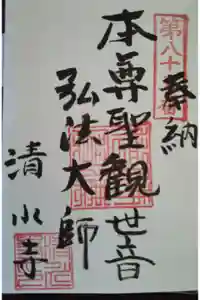 奉納
第八十
本尊聖観世音
弘法大師
清水寺